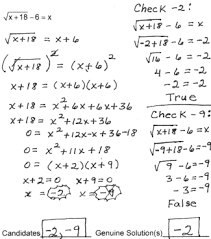 √x+18 - 6 = x
√x+18 = x+6
(√x+18)² = (x+6)²
x+18 = (x+6)(x+6)
x+18 = x²+6x+6x+36
x+18 = x²+12x+36
0 = x²+12x-x+36-18
0 = x²+11x+18
0 = (x+2)(x+9)
x+2=0 x+9=0
x = -2 x = -9
Check -2:
√x+18 - 6 = x
√-2+18 - 6 = -2
√16 - 6 = -2
4-6 = -2
-2 = -2
True
Check -9:
√x+18 - 6 = x
√-9+18 - 6 = -9
√9 - 6 = -9
3-6 = -9
-3 = -9
False
Candidates -2, -9 Genuine Solution(s) -2